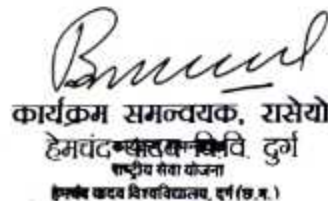 कार्यक्रम समन्वयक, रासेयो
हेमचंद यादव वि.वि. दुर्ग
राष्ट्रीय सेवा योजना
हेमचंद यादव विश्वविद्यालय, दुर्ग (छ.ग.)